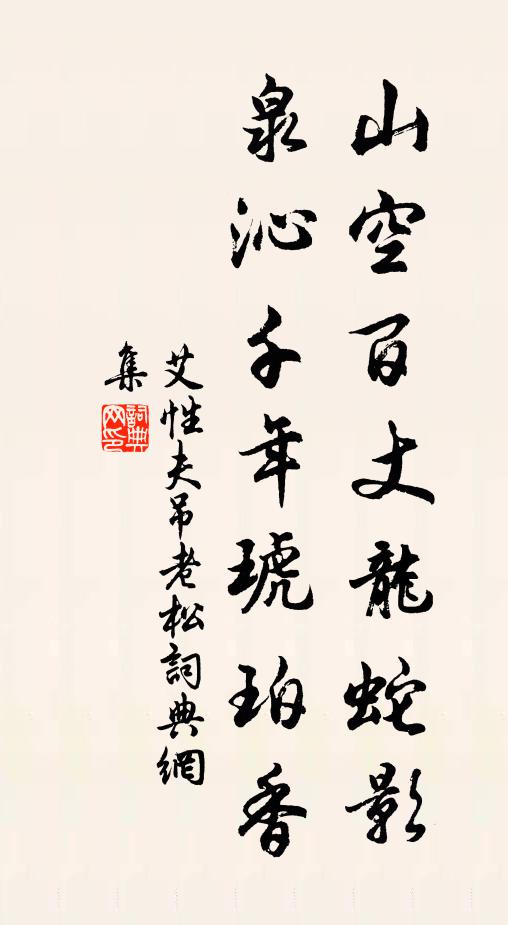 山空百丈龍蛇影
泉沁千年琥珀香
艾性夫吊老松詞典網
集
詞典
网印